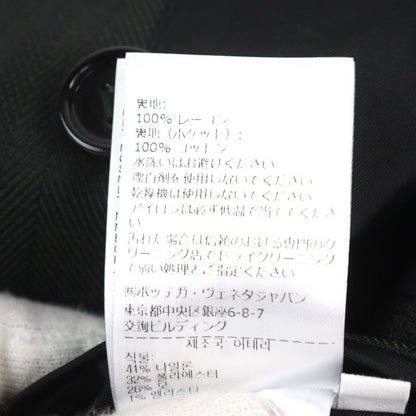 裏地:
100% レーヨン
裏地 (ポケット):
100% コットン
水洗いはお避けください
漂白剤を使用しないでください
乾燥機は使用しないでください
アイロンは必ず低温で当ててください
汚れた場合は信頼のおける専門のク
リーニング店でドライクリーニング
で弱い処理とご指定ください
㈱ボッテガ・ヴェネタジャパン
東京都中央区銀座6-8-7
交詢ビルディング
제조국 이태리
식물:
41% 나일론
32% 폴리에스터
26% 모
1% 엘라스틴